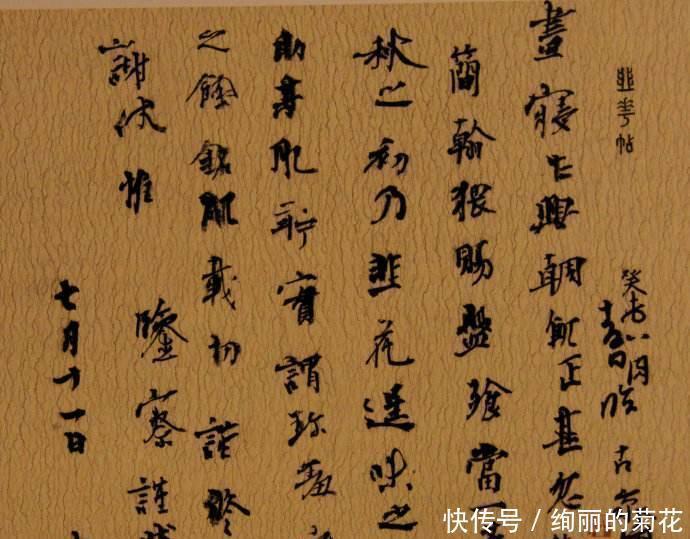 韭花帖
晝寢乍興輖飢正甚忽
簡翰猥賜盤飧當一
秋之初乃韭花逞味之
助其肥羜實謂珍羞
之餘銘肌載切謹
謝伏惟
鑒察謹狀
七月十一日
快传号/绚丽的菊花